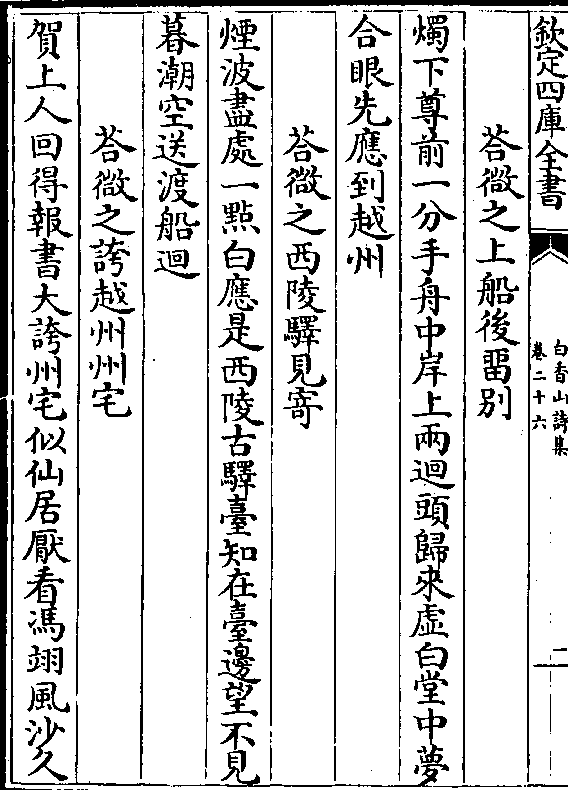 欽定四庫全書
白香山詩集
卷二十六
二
荅微之上船後留别
燭下尊前一分手舟中岸上兩迴頭歸來虛白堂中夢
合眼先應到越州
荅微之西陵驛見寄
煙波盡處一㸃白應是西陵古驛臺知在臺邊望不見
暮潮空送渡船迴
荅微之誇越州州宅
賀上人回得報書大誇州宅似仙居厭看馮翊風沙久